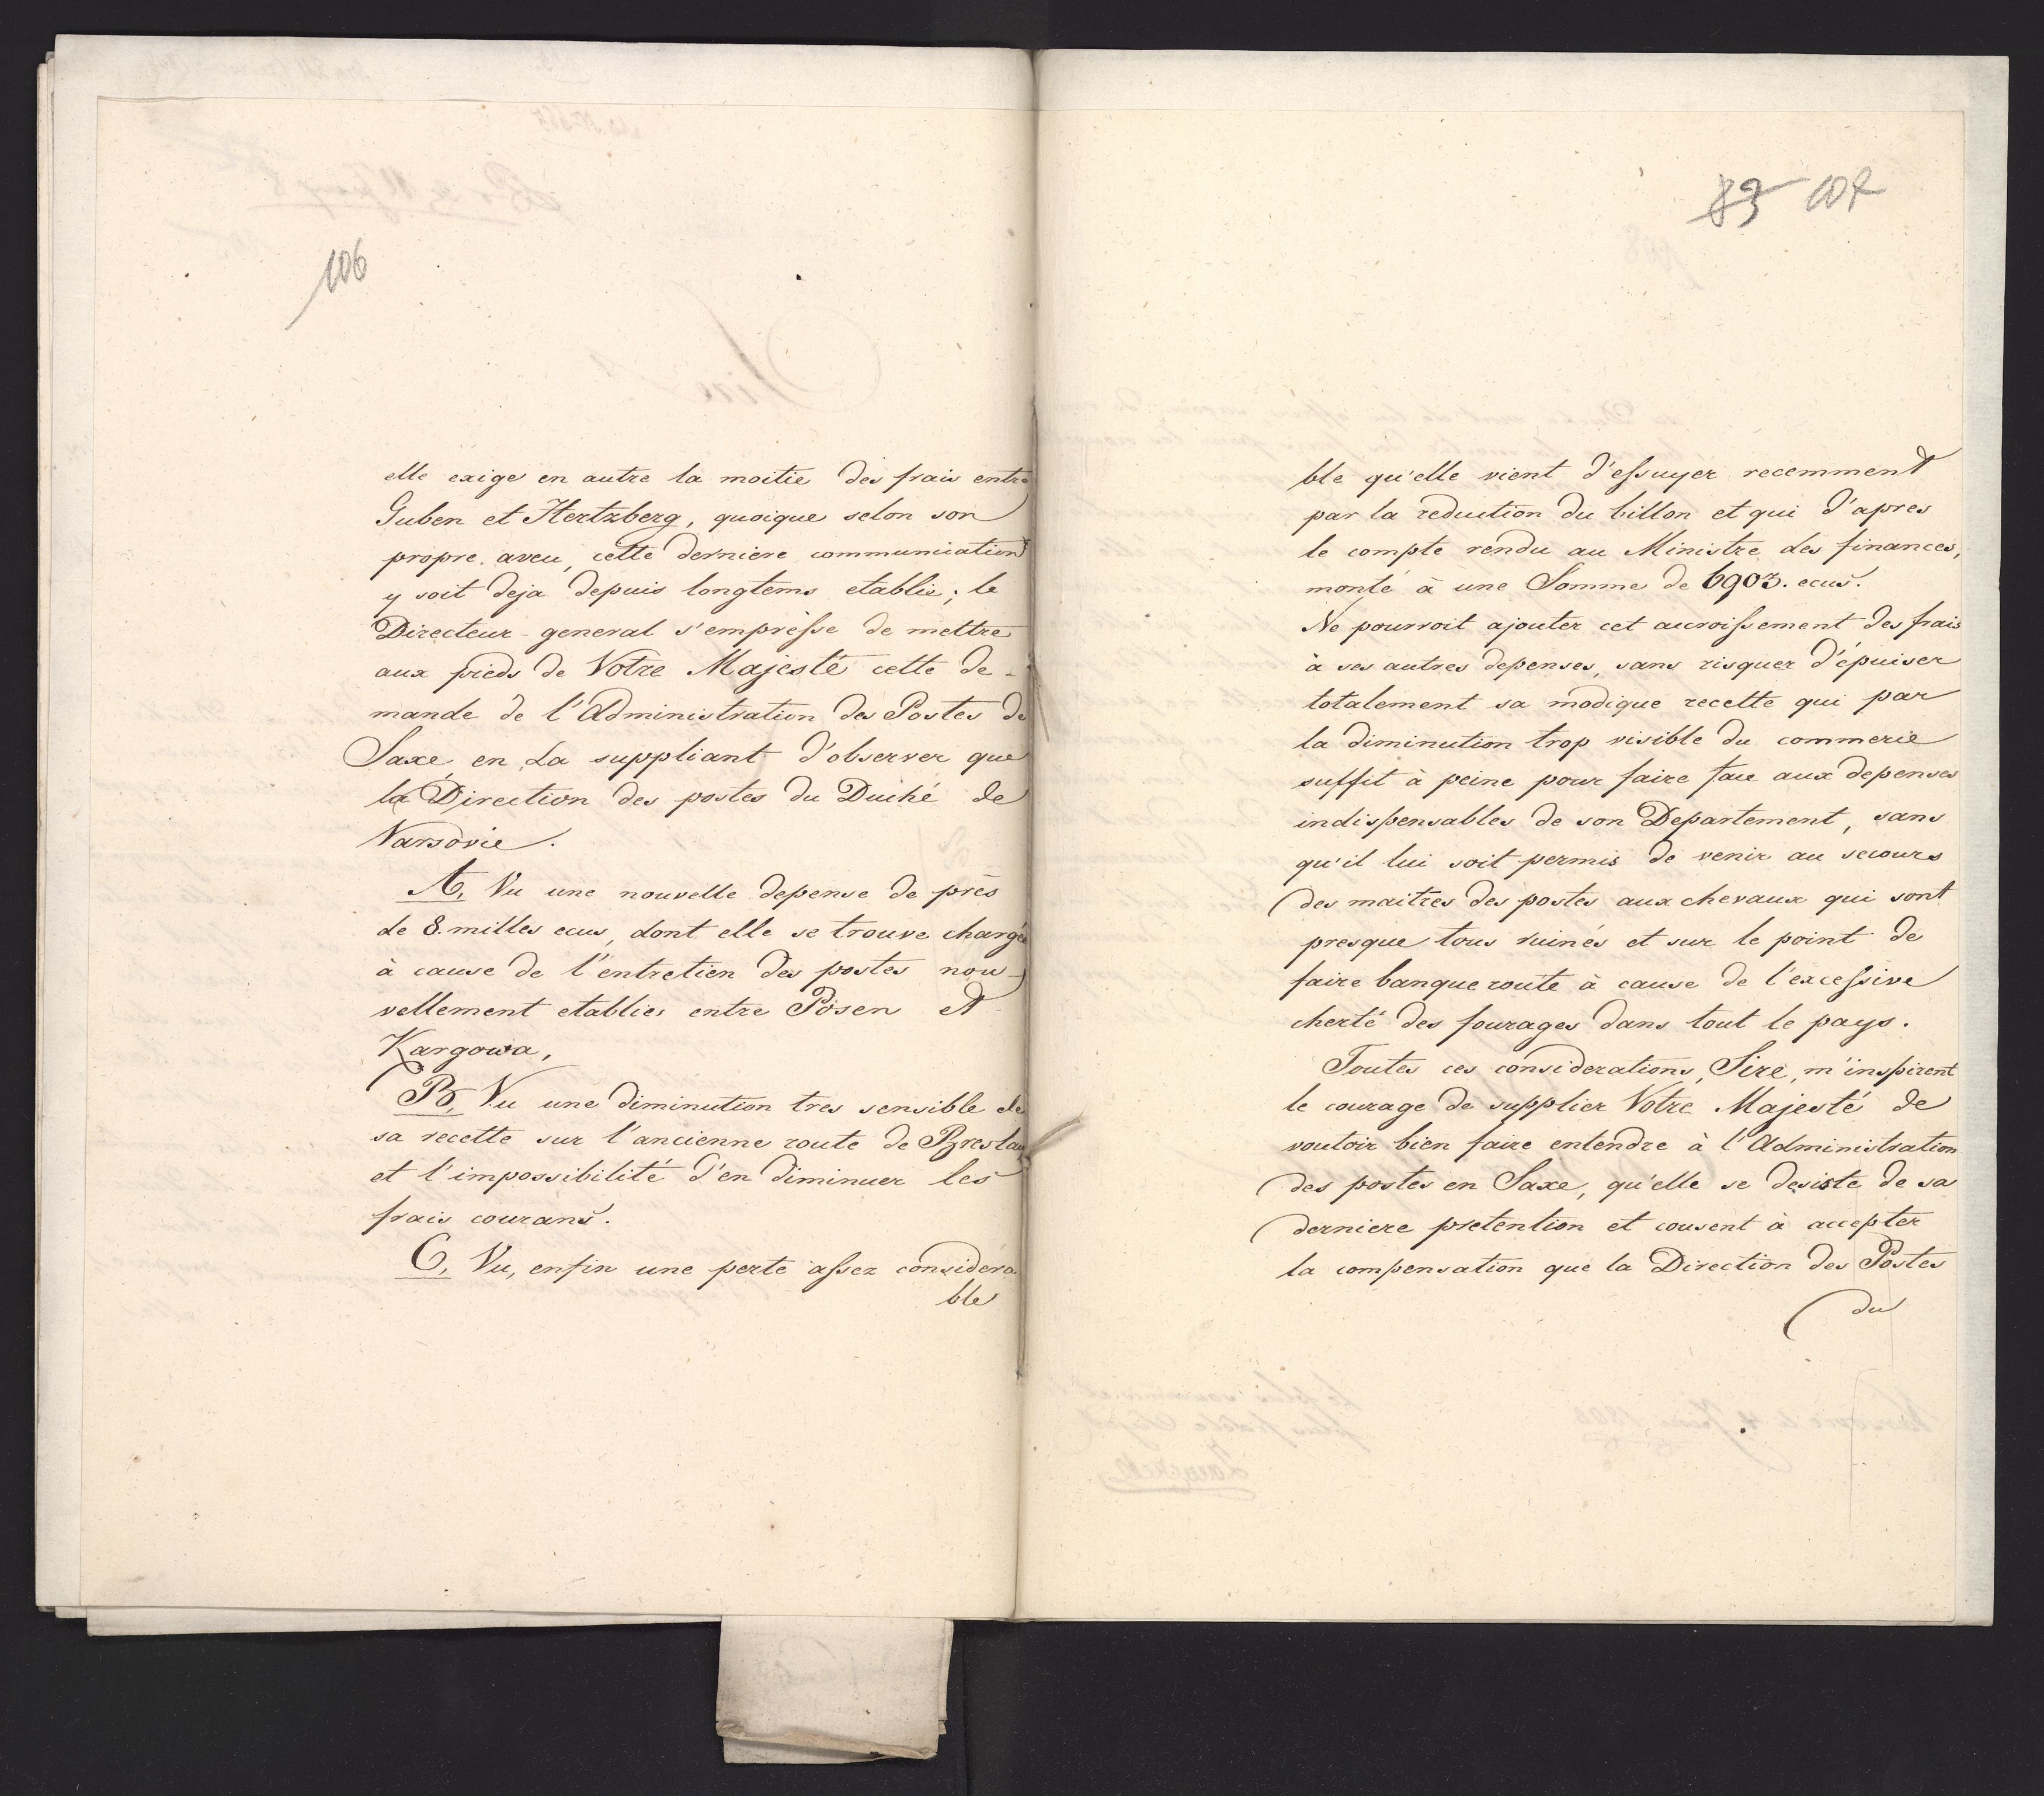 106
elle exige en autre la moitie des frais entre
Guben et Hertzberg, quoique selon son
propre aveu, cette derniere communication
y soit deja depuis longtems etablie; le
Directeur-general s'empresse de mettre
aux pieds de Votre Majesté cette de-
mande de l'Administration des Postes de
Saxe, en La suppliant d'observer que
la Direction des postes du Duché de
Varsovie.
A, Vu une nouvelle depense de près
de 8. milles ecus, dont elle se trouve chargée
à cause de l'entretien des postes nou-
vellement etablies entre Posen et
Kargowa,
B, Vu une diminution tres sensible de
sa recette sur l'ancienne route de Breslau,
et l'impossibilité d'en diminuer les
frais courans.
C, Vu, enfin une perte assez considera
ble
83 107
ble qu'elle vient d'essuyer recemment
par la reduction du billon et qui d'apres
le compte rendu au Ministre des finances,
monté à une Somme de 6903. ecus.
Ne pourroit ajouter cet accroissement des frais
à ses autres depenses, sans risquer d'épuiser
totalement sa modique recette qui par
la diminution trop visible du commerce
suffit à peine pour faire face aux depenses
indispensables de son Departement, sans
qu'il lui soit permis de venir au secours
des maitres des postes aux chevaux qui sont
presque tous ruinés et sur le point de
faire banqueroute à cause de l'excessive
cherté des fourages dans tout le pays.
Toutes ces considerations, Sire, m'inspirent
le courage de supplier Votre Majesté de
vouloir bien faire entendre à l'Administration
des postes en Saxe, qu'elle se desiste de sa
derniere pretention et consent à accepter
la compensation que la Direction des Postes
du